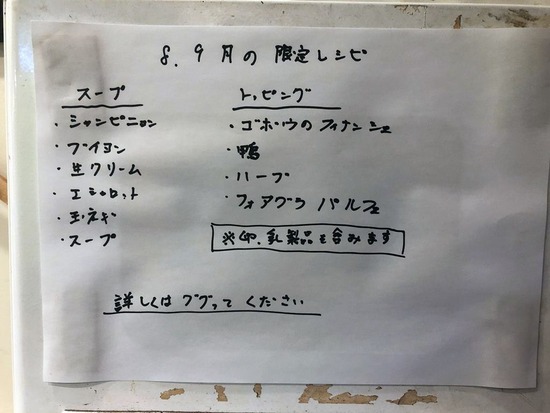 8.9月の限定レシピ
スープ
・シャンピニョン
・ブイヨン
・生クリーム
・エシャロット
・玉ネギ
・スープ
トッピング
・ゴボウのフィナンシェ
・鴨
・ハーブ
・フォアグラ パルフェ
※卵、乳製品を含みます
詳しくはググってください